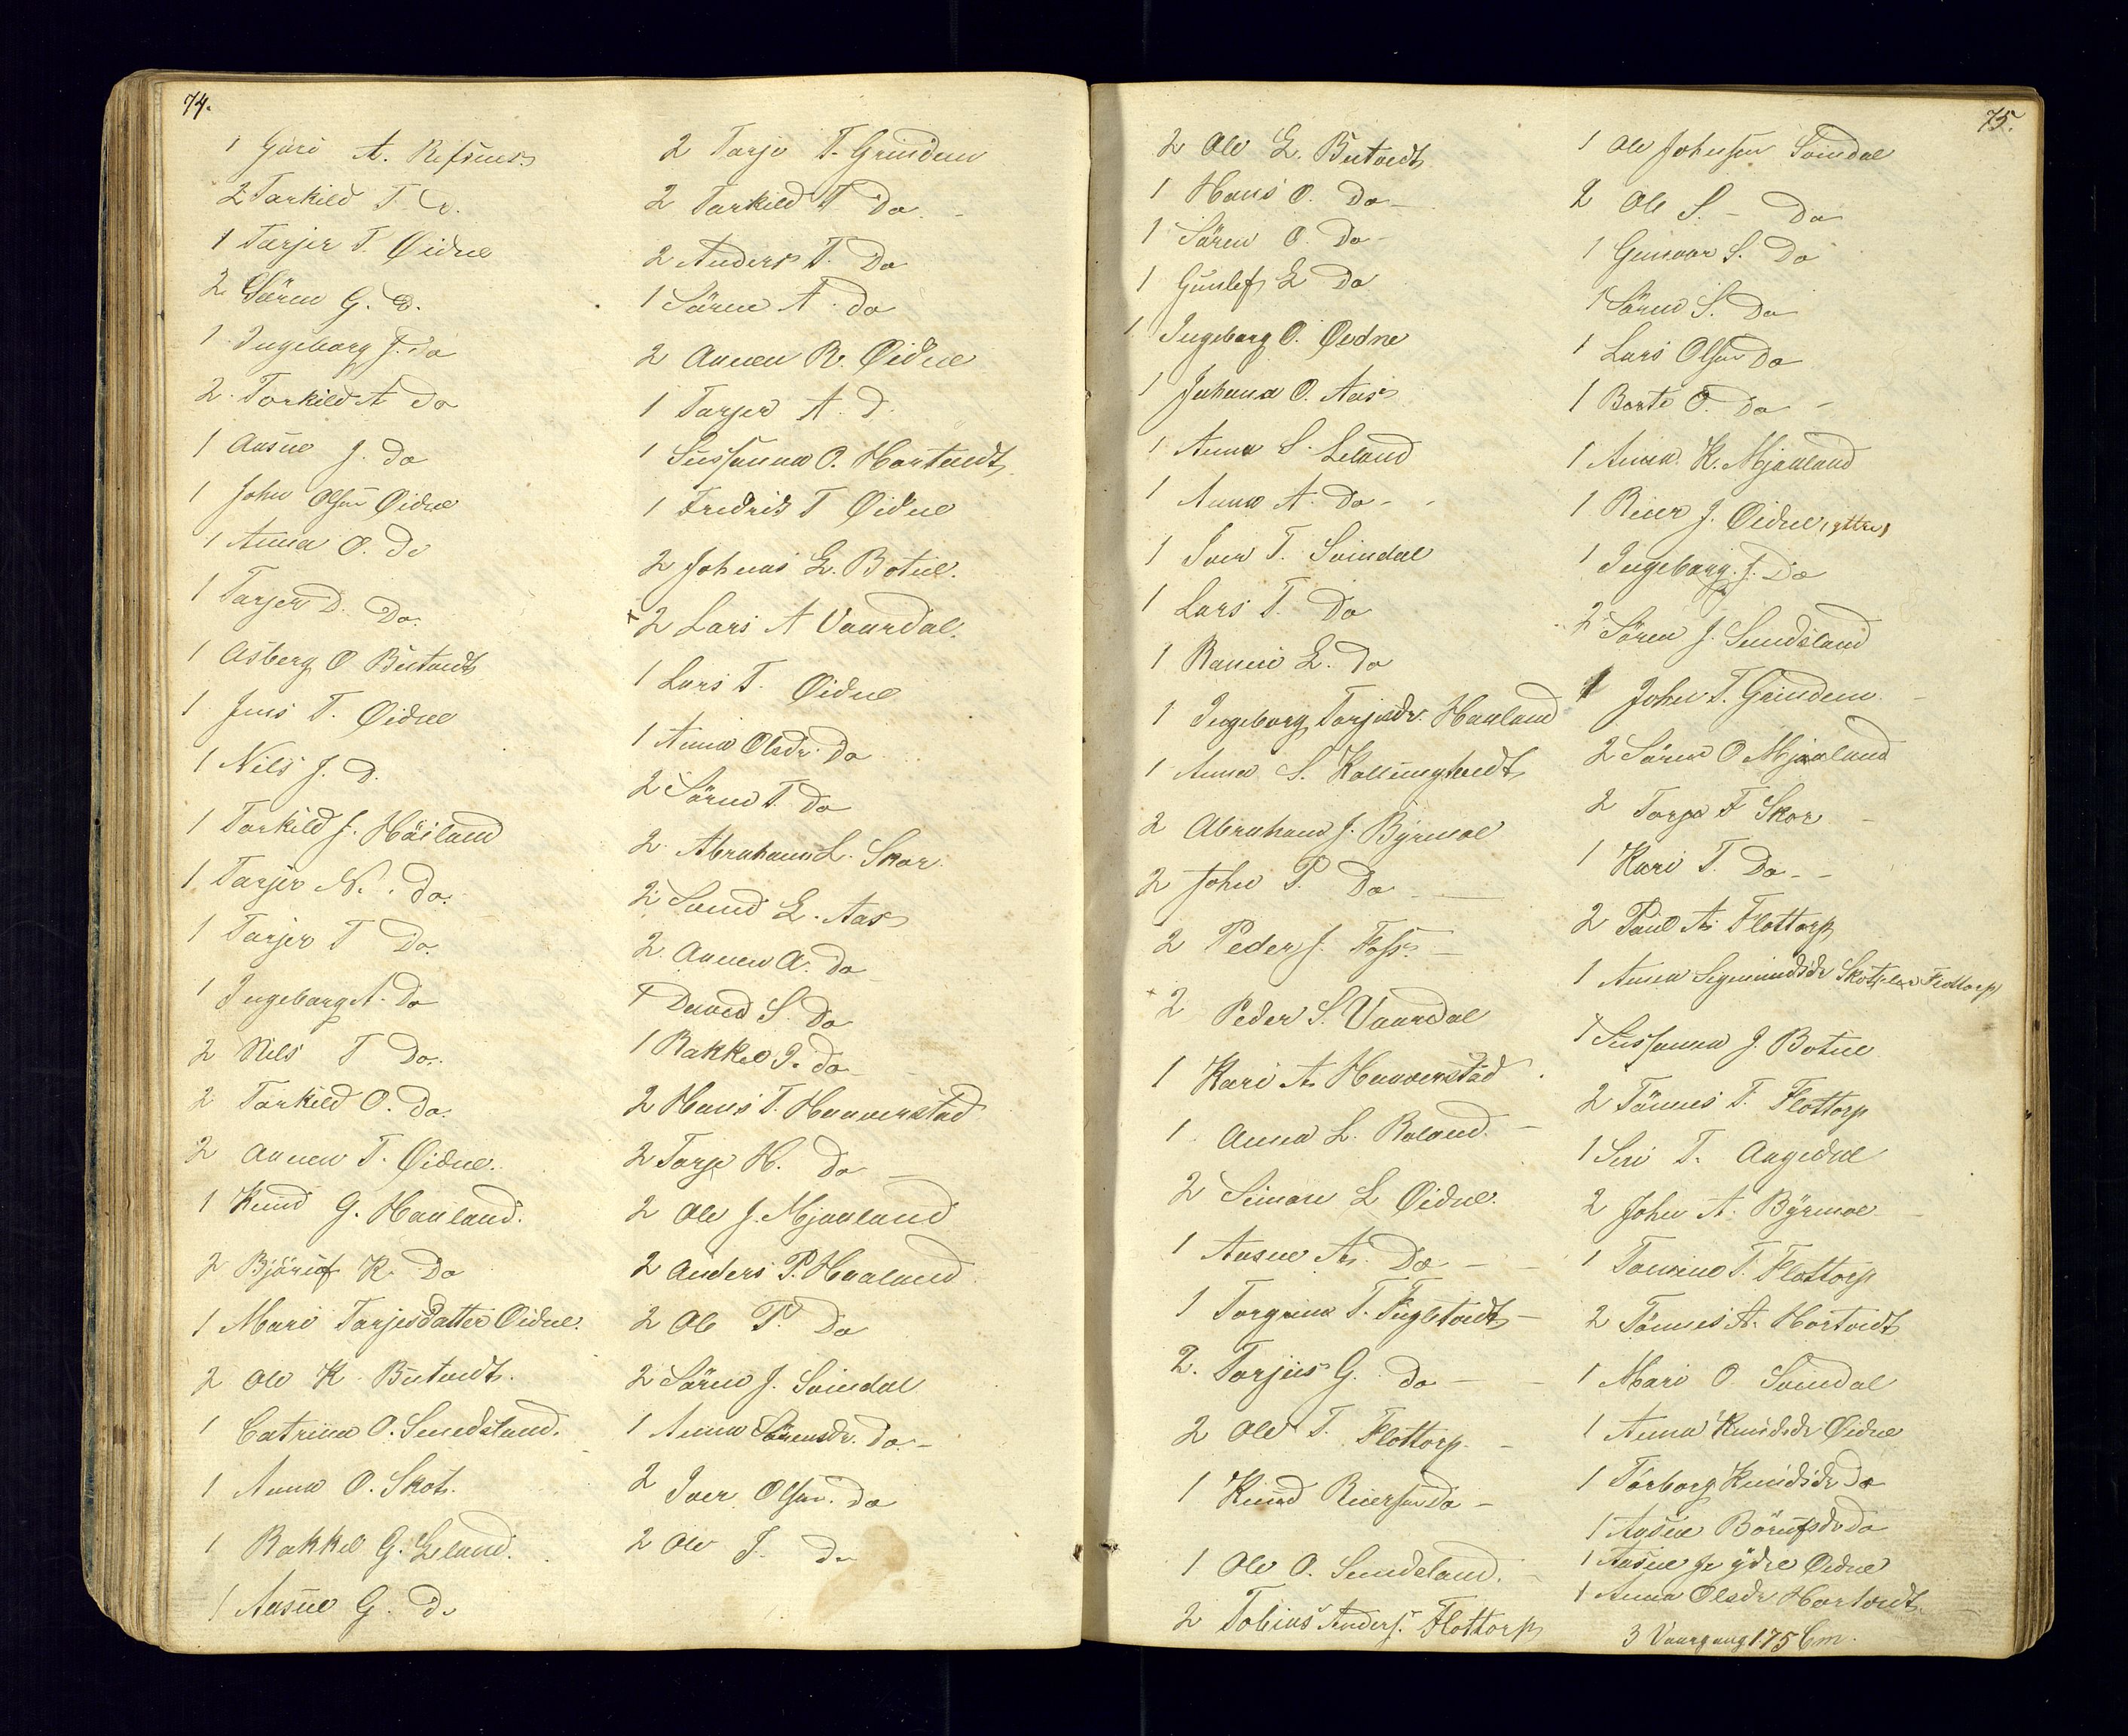 74.
1 Guri A. Refsnes
2 Tarkild T. D.
1 Tarjer T. Øidne
2 Sören G. D.
1 Ingeborg J. Do
2 Torkild A Do
1 Aasne J. Do
1 John Olsen Øidne
1 Anna O. Do
1 Tarjer D. Do.
1 Asberg O Butvedt
1 Jens T. Øidne
1 Nils J. D.
1 Tarkild J. Häiland
1 Tarjer N. Do.
1 Tarjer T Do.
1 Ingeborg A. Do
2 Nils T Do.
2 Tarkild O. Do.
2 Aanen T. Øidne.
1 Knud G. Haaland.
2 Björuf K. Do
1 Mari Tarjesdatter Øidne.
2 Ole K. Butvedt.
1 Catrina O. Sundsland.
1 Anna O. Skots.
1 Rakkel G. Leland.
1 Aasne G. Do
2 Tarje T. Grindem
2 Tarkild T Do.
2 Anders T. Do
1 Sören A. Do
2 Aanen R. Øidne
1 Tarjer A. D.
1 Sussanna O. Hortvedt
1 Fredrik T Øidne
2 Johnas L. Botne.
2 Lars A Vaardal.
1 Lars T. Øidne
1 Anna Olsdr. Do
2 Sören T. Do
2 Abraham L. Skor
2 Svend L. Aas
2 Aanen A. Do
1 David S. Do
1 Rakkel J. Do
2 Hans T. Haaverstad
2 Tarje H. Do
2 Ole J. Mjaaland
2 Anders P. Haaland
2 Ole P. Do
2 Sören J. Svindal
1 Anna Sörensdr. Do.
2 Iver Olsen. Do
2 Ole J. Do
75.
2 Ole L. Butvedt
1 Hans O. Do
1 Sören O. Do
1 Gunlef L Do
1 Ingeborg O. Øedne
1 Johana O. Aas
1 Anna S. Leland
1 Anna A. Do
1 Iver T. Svindal
1 Lars T. Do
1 Ranni L. Do
1 Ingeborg Torjusdr. Haaland
1 Anna S. Kollungtvedt
2 Abraham J. Byrmoe
2 John P. Do
2 Peder J. Foss
2 Peder S. Vaardal
1 Kari A. Haaverstad
1 Anna L. Roland.
2 Simon L Øidne.
1 Aasne A. Do
1 Torgrim T. Fugletvedt
2. Torjus G. Do
2 Ole T. Flottorp.
1 Knud Reiersen Do
1 Ole O. Sundsland.
2 Tobias Anders. Flottorp
1 Ole Johnsen Svindal
2 Ole S. Do
1 Gunvor S. Do
1 Sören S. Do
1 Lars Olsen Do
1 Borte O. Do
1 Anna K. Mjaaland
1 Reier J. Øidne (yttre)
1 Ingeborg J. Do
2 Sören J. Sundsland
1 John T. Grindem
2 Sören O Mjaaland
2 Torje T Skor
1 Kari T. Do
2 Paul A. Flottorp
1 Anna Sigmundsdr Skots Flottorp
1 Sussanna J. Botne
2 Tönnes T. Flottorp
1 Siri T. Augedal
2 John A. Byrmoe
1 Tomine T. Flottorp
2 Tönnes A. Hortvedt
1 Mari O Svindal
1 Anna Knudsdr Øidne
1 Torborg Knudsdr Do
1 Aasne Börufsdr Do
1 Aasne J ydre Øidne
1 Anna Olsdr Hortvedt
3 Vaargang 175 Cm.